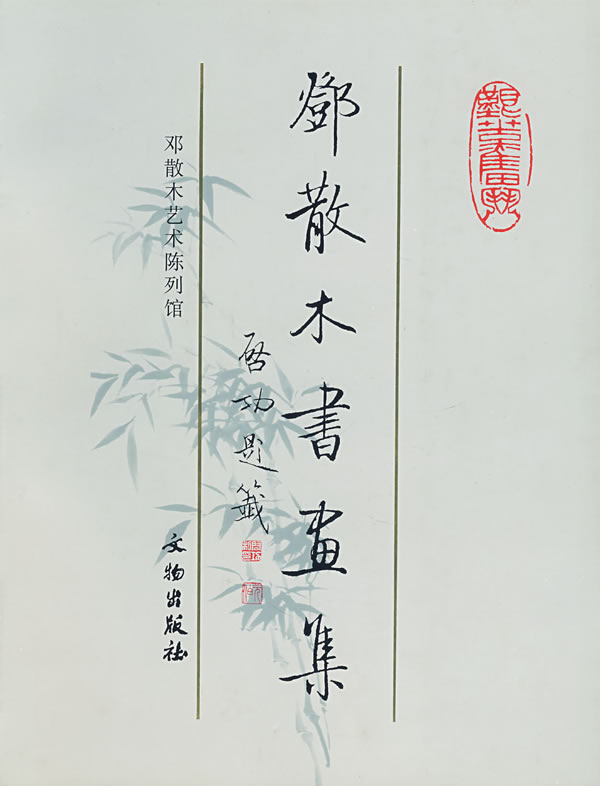 鄧散木書画集
啓功题籤
邓散木艺术陈列馆
文物出版社